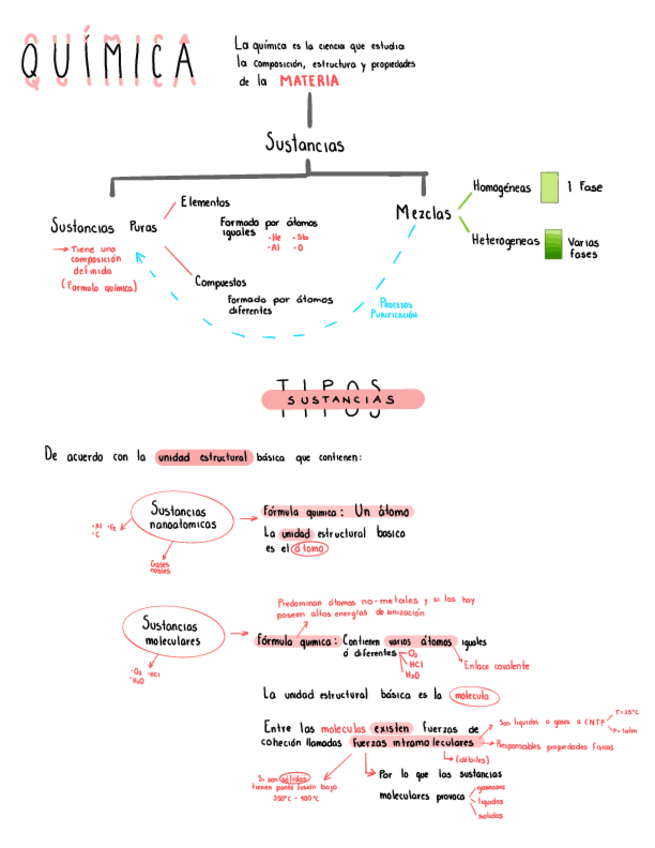 QUÍMICA
La química es la ciencia que estudia
la composición, estructura y propiedades
de la MATERIA
Sustancias
Sustancias Puras
→ Tiene una
composición
definida
(Formula química)
Elementos
Formado por átomos
iguales
·He
·Al ·O
Compuestos
Formado por átomos
diferentes
Mezclas
Homogéneas
1 Fase
Heterogeneas
Varias
fases
Procesos
Purificación
TIPOS
SUSTANCIAS
De acuerdo con la unidad estructural básica que contienen:
Sustancias
nanoatomicas
·Al ·Fe
·C
Gases
nobles
Fórmula quimica: Un átomo
La unidad estructural basica
es el átomo
Predominan átomos no-metales y si los hay
poseen altas energías de ionización
Sustancias
moleculares
·O₂ ·HCl
·H₂O
Fórmula quimica: Contienen varios átomos iguales
ó diferentes
O₂
HCl
H₂O
Enlace covalente
La unidad estructural básica es la molecula
Entre las moleculas existen fuerzas de
coheción llamadas fuerzas intramoleculares
Son liquidas o gases a CNTP
T=25°C
P=1atm
Responsables propiedades físicas
(débiles)
Si son sólidas
tienen punto fusión bajo
350°C - 400°C
Por lo que las sustancias
moleculares provoca
gaseosas
liquidas
solidas